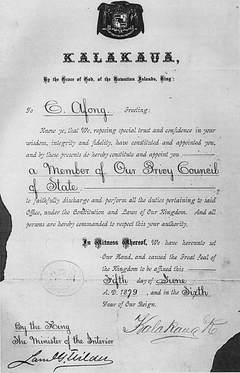 KALAKAUA,
By the Grace of God, of the Hawaiian Islands, King:
To C. Afong. Greeting:
Know ye, that We, reposing special trust and confidence in your
wisdom, integrity and fidelity, have constituted and appointed you,
and by these presents do hereby constitute and appoint you
a Member of Our Privy Council
of State.
to faithfully discharge and perform all the duties pertaining to said
Office, under the Constitution and Laws of Our Kingdom. And all
persons are hereby commanded to respect this your authority.
In Witness Whereof, We have hereunto set
Our Hand, and caused the Great Seal of
the Kingdom to be affixed this
Fifth day of June
A.D. 1879, and in the Sixth
Year of Our Reign.
Kalakaua R
By the King
The Minister of the Interior
Saml G. Wilder